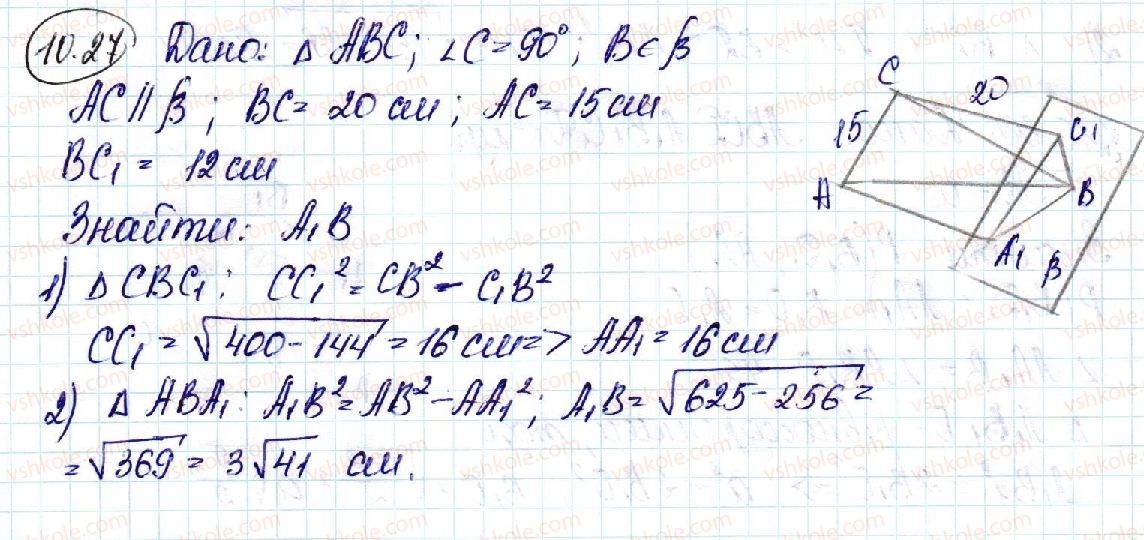 10.27 Дано: Δ ABC; ∠C = 90°; B ∈ β
AC || β; BC = 20 см; AC = 15 см
BC₁ = 12 см
Знайти: A₁B
1) Δ CBC₁: CC₁² = CB² - C₁B²
CC₁ = √400-144 = 16 см => AA₁ = 16 см
2) Δ ABA₁: A₁B² = AB² - AA₁²; A₁B = √625-256 =
= √369 = 3√41 см.
C
20
15
C₁
A
B
A₁
β
vshkole.com